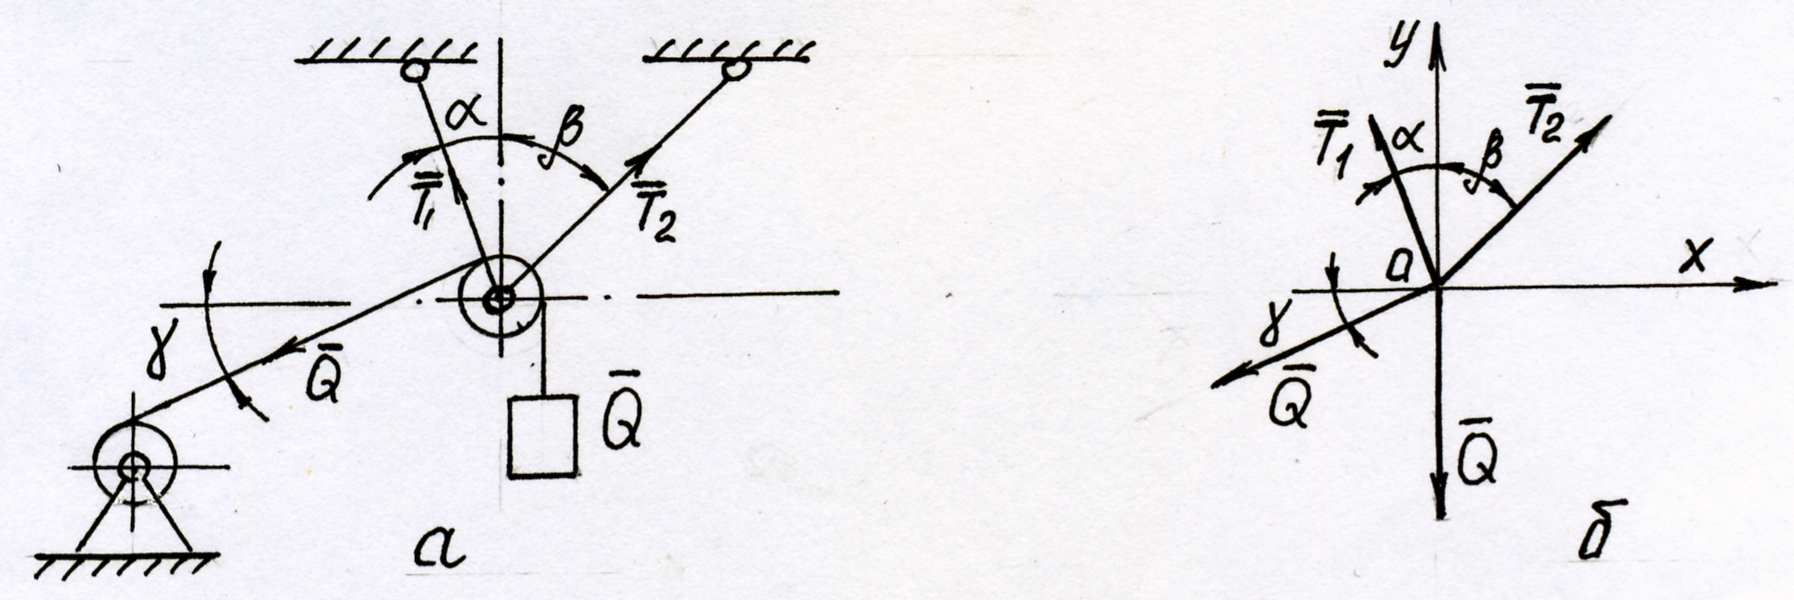 α
β
T̿₁
T̿₂
γ
Q̄
Q̄
а
y
T̿₁
α
β
T̿₂
a
x
γ
Q̄
Q̄
б